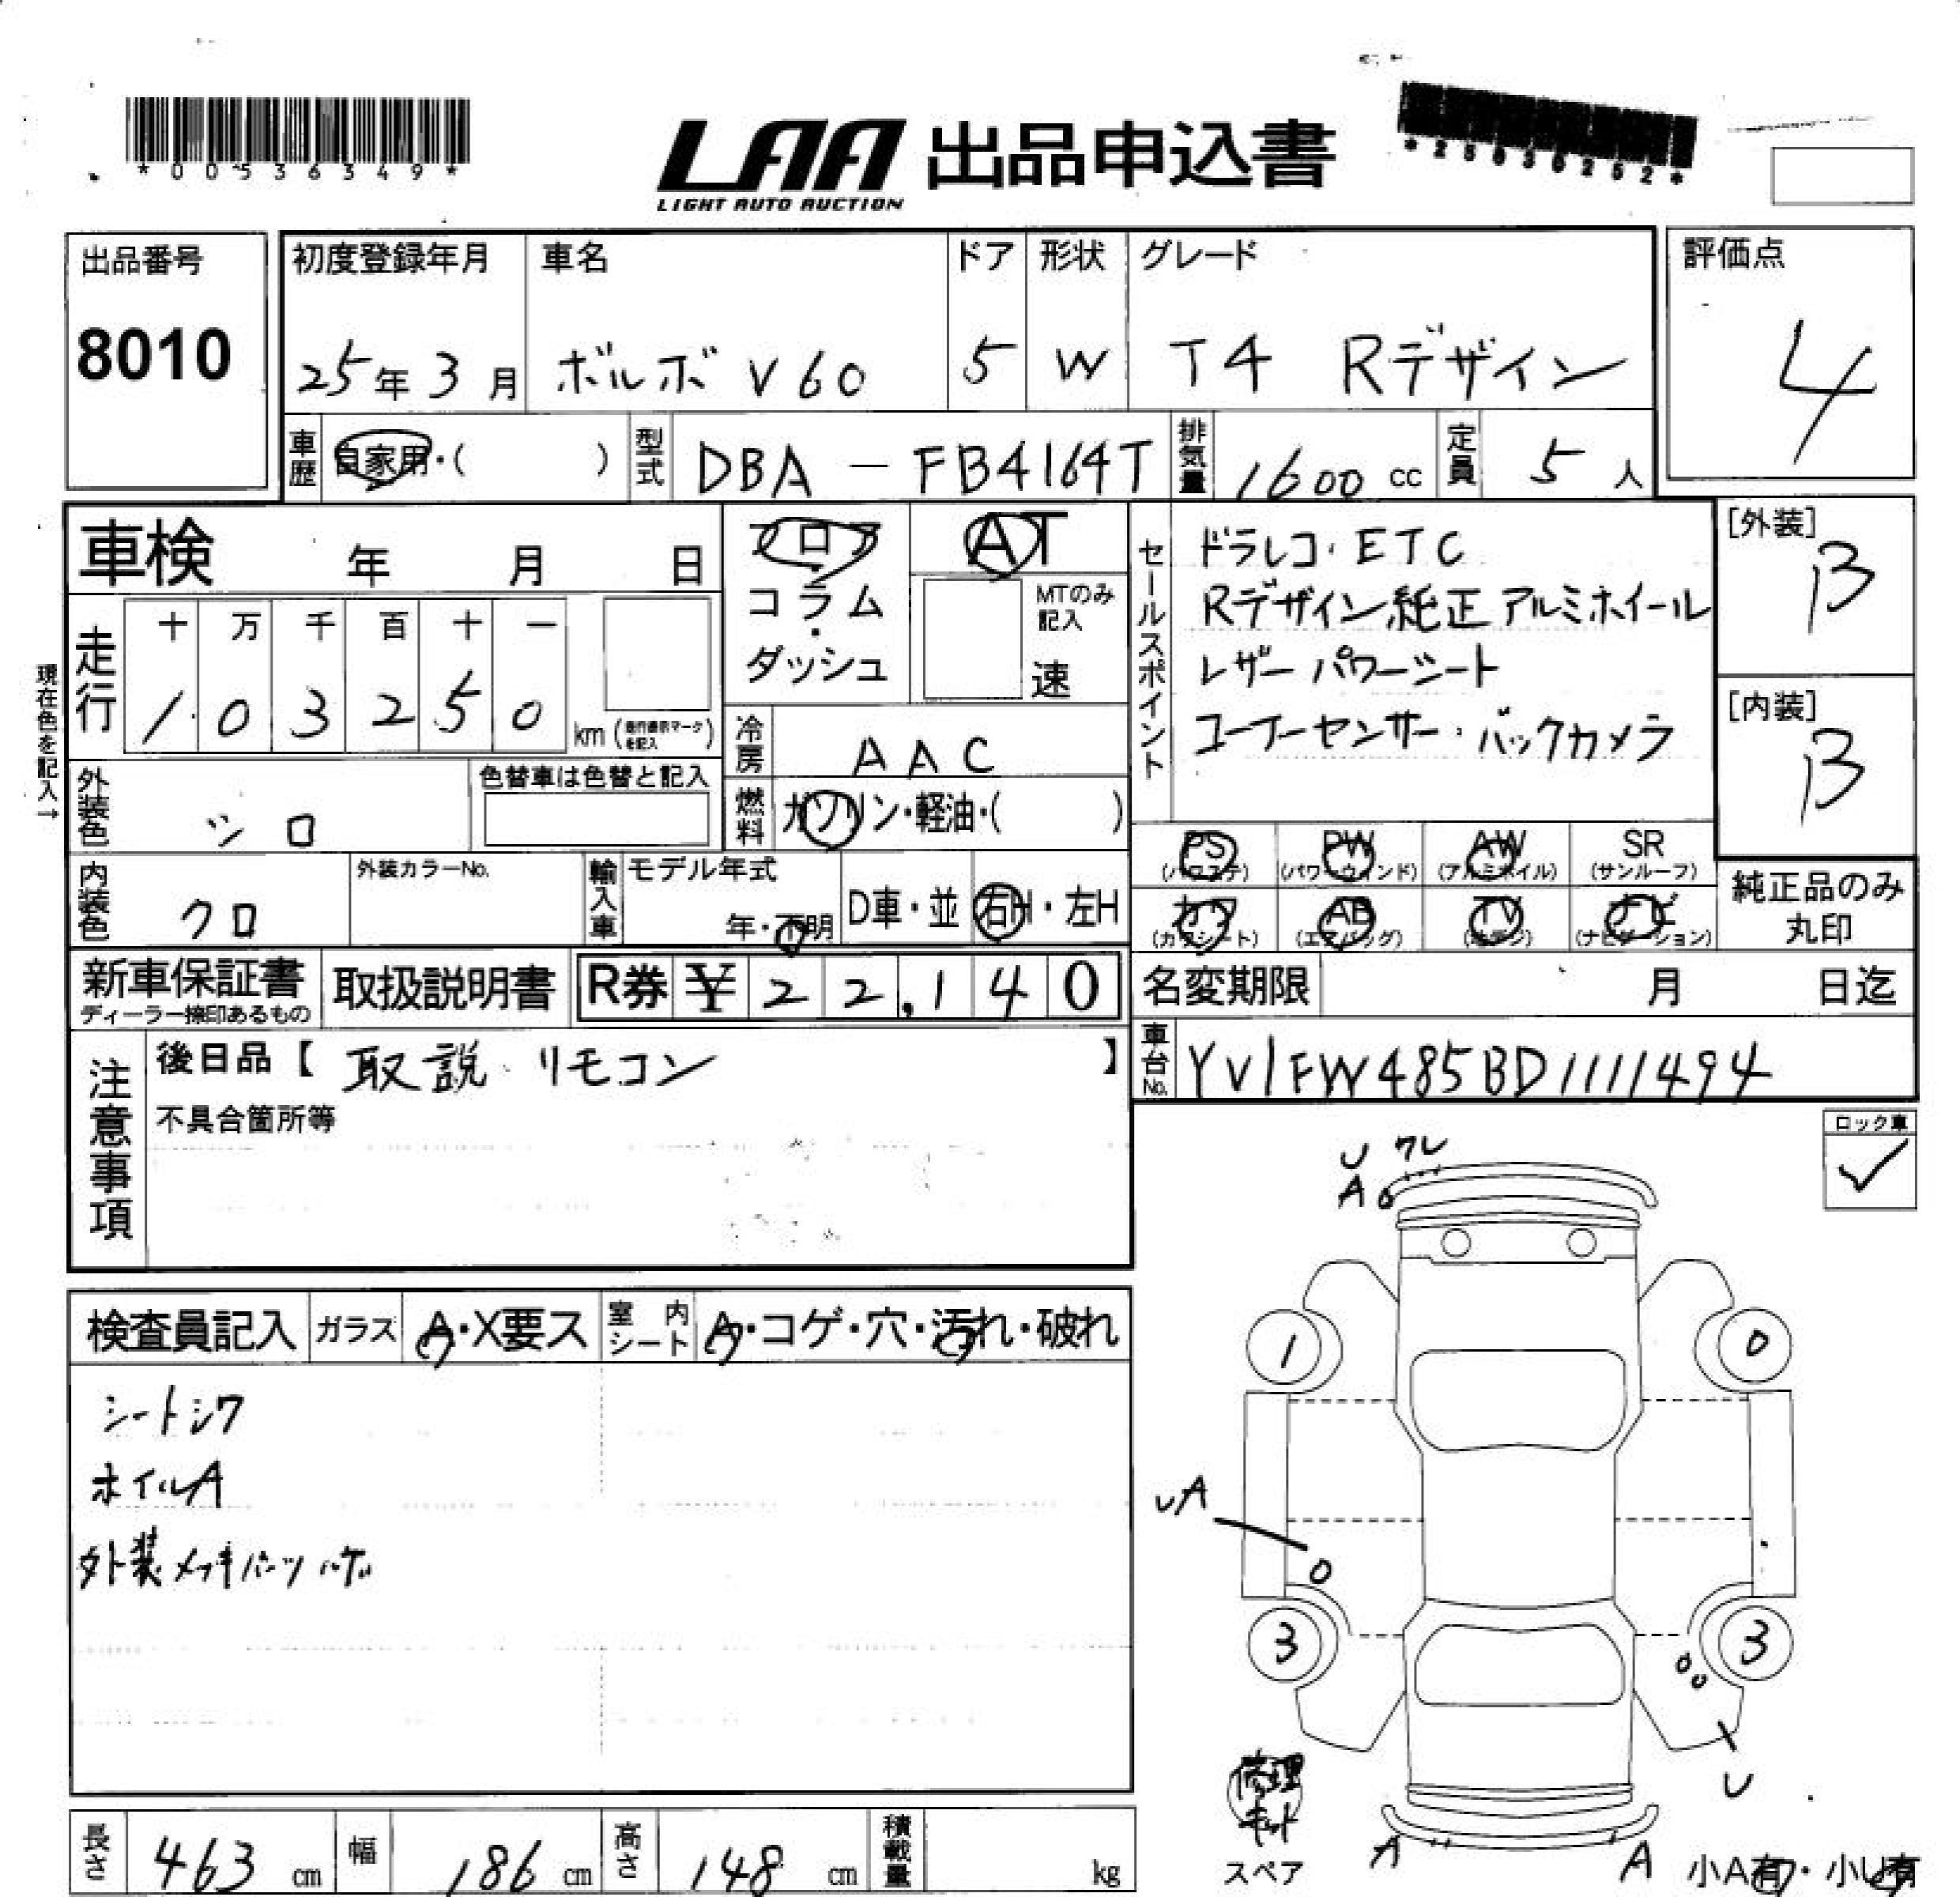 *00536349*
LAA 出品申込書
LIGHT AUTO AUCTION
*25030252*
出品番号
8010
初度登録年月
25年3月
車名
ボルボ V60
ドア
5
形状
W
グレード
T4 Rデザイン
評価点
4
車歴
自家用・( )
型式
DBA-FB4164T
排気量
1600 cc
定員
5人
車検 年 月 日
フロア・コラム・ダッシュ
AT
MTのみ記入
速
セールスポイント
ドラレコ・ETC
Rデザイン純正アルミホイール
レザーパワーシート
コーナーセンサー・バックカメラ
[外装]
B
[内装]
B
現在色を記入→
走行
十 万 千 百 十 一
1 0 3 2 5 0
km(走行表示マークを記入)
冷房
AAC
外装色
シロ
色替車は色替と記入
燃料
ガソリン・軽油・( )
内装色
クロ
外装カラーNo.
輸入車
モデル年式
年・不明
D車・並
右H・左H
PS (パワステ)
PW (パワーウィンド)
AW (アルミホイル)
SR (サンルーフ)
カワ (カワシート)
AB (エアバッグ)
TV (地デジ)
ナビ (ナビゲーション)
純正品のみ丸印
新車保証書
ディーラー捺印あるもの
取扱説明書
R券 ¥22,140
名変期限 月 日迄
注意事項
後日品【取説・リモコン】
不具合箇所等
車台No.
YV1FW485BD1111494
ロック車
✓
U ワレ
A
検査員記入
ガラス
A・X要ス
室内シート
A・コゲ・穴・汚れ・破れ
シートシワ
ホイルA
外装メッキパーツハゲ
1
0
UA
3
3
U
修理キット
スペア
A
A
小A有・小U有
長さ
463 cm
幅
186 cm
高さ
148 cm
積載量
kg